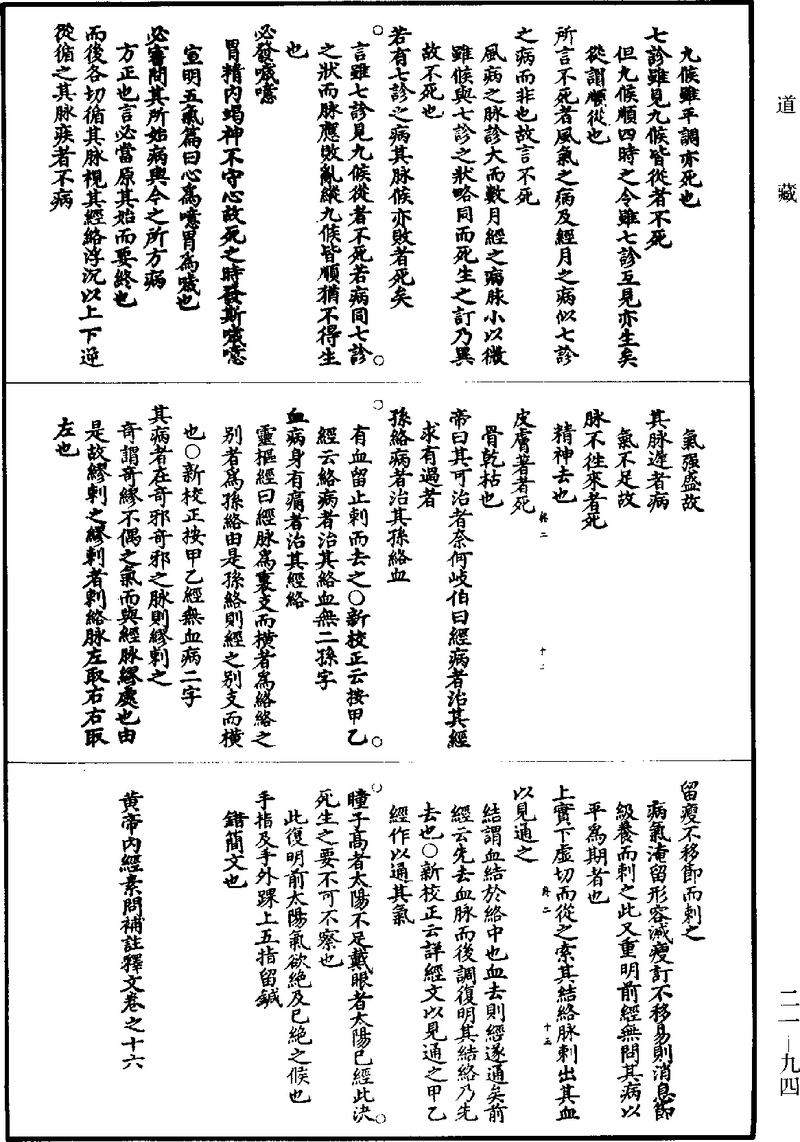 道藏
九候雖平調亦死也
七診雖見九候皆從者不死
但九候順四時之令雖七診互見亦生矣
從謂順從也
所言不死者風氣之病及經月之病似七診
之病而非也故言不死
風病之脉診大而數月經之病脉小以微
雖候與七診之狀略同而死生之訂乃異
故不死也
若有七診之病其脉候亦敗者死矣
言雖七診見九候從者不死若病同七診
之狀而脉應敗亂縱九候皆順猶不得生
也
必發噦噫
胃精內竭神不守心故死之時發斯噦噫
宣明五氣篇曰心爲噫胃爲噦也
必審問其所始病與今之所方病
方正也言必當原其始而要終也
而後各切循其脉視其經絡浮沉以上下逆
從循之其脉疾者不病
氣强盛故
其脉遲者病
氣不足故
脉不徃來者死
精神去也
皮膚著者死
骨乾枯也
帝曰其可治者奈何岐伯曰經病者治其經
求有過者
孫絡病者治其孫絡血
有血留止刺而去之○新校正云按甲乙
經云絡病者治其絡血無二孫字
血病身有痛者治其經絡
靈樞經曰經脉爲裏支而橫者爲絡絡之
別者爲孫絡由是孫絡則經之別支而橫
也○新校正按甲乙經無血病二字
其病者在奇邪奇邪之脉則繆刺之
奇謂奇繆不偶之氣而與經脉繆處也由
是故繆刺之繆刺者刺絡脉左取右右取
左也
留瘦不移節而刺之
病氣淹留形容減瘦訂不移易則消息節
級養而刺之此又重明前經無問其病以
平爲期者也
上實下虛切而從之索其結絡脉刺出其血
以見通之
結謂血結於絡中也血去則經遂通矣前
經云先去血脉而後調復明其結絡乃先
去也○新校正云詳經文以見通之甲乙
經作以通其氣
瞳子高者太陽不足戴眼者太陽已經此決
死生之要不可不察也
此復明前太陽氣欲絕及已絕之候也
手指及手外踝上五指留鍼
錯簡文也
黃帝內經素問補註釋文卷之十六
二一—九四